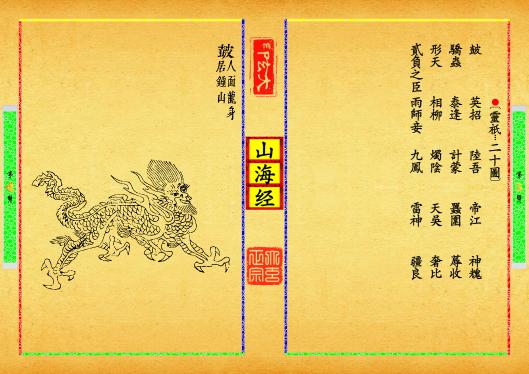 ●〔靈祇：二十圖〕
皷 英招 陸吾 帝江 神
驕蟲 泰逢 計蒙 圍 蓐收
形天 相柳 燭陰 天吳 奢比
貳負之臣 雨師妾 九鳳 雷神 彊良
山海经
皷
人面龍身
居鐘山